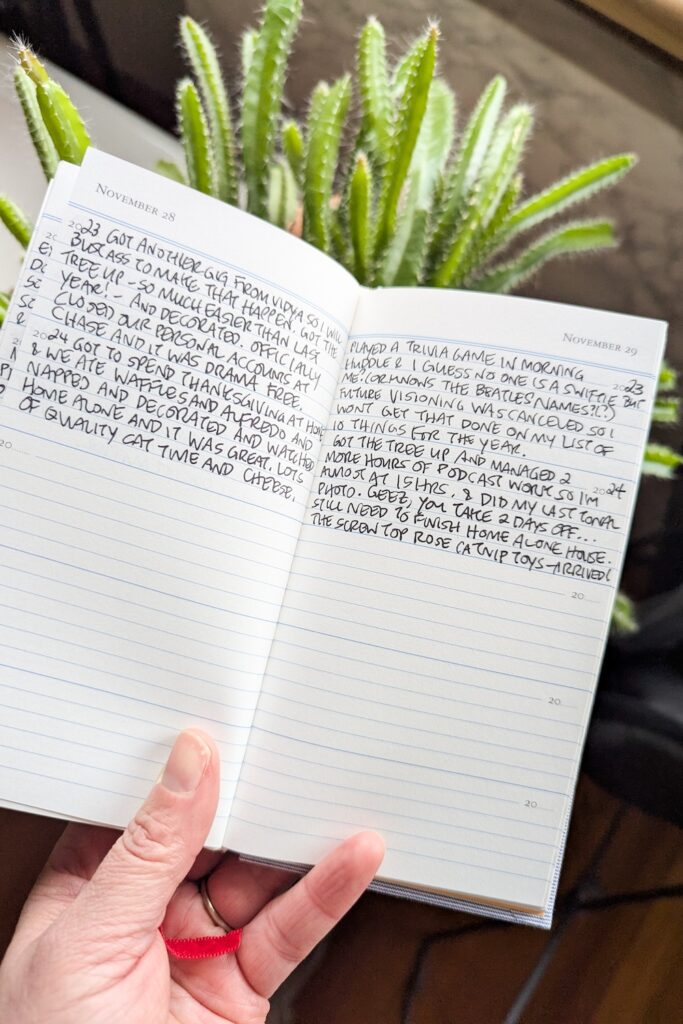 NOVEMBER 28
2023 GOT ANOTHER GIG FROM VIDYA SO I WILL
BUST ASS TO MAKE THAT HAPPEN. GOT THE
TREE UP - SO MUCH EASIER THAN LAST
YEAR! - AND DECORATED. OFFICIALLY
CLOSED OUR PERSONAL ACCOUNTS AT
CHASE AND IT WAS DRAMA FREE.
2024 GOT TO SPEND THANKSGIVING AT HOME
& WE ATE WAFFLES AND ALFREDO AND
NAPPED AND DECORATED AND WATCHED
HOME ALONE AND IT WAS GREAT. LOTS
OF QUALITY CAT TIME AND CHEESE.
20
NOVEMBER 29
2023
PLAYED A TRIVIA GAME IN MORNING
HUDDLE & I GUESS NO ONE IS A SWIFTIE BUT
ME. (OR KNOWS THE BEATLES NAMES?!?)
FUTURE VISIONING WAS CANCELED SO I
WONT GET THAT DONE ON MY LIST OF
10 THINGS FOR THE YEAR.
2024
GOT THE TREE UP AND MANAGED 2
MORE HOURS OF PODCAST WORK SO I'M
ALMOST AT 15HRS. & DID MY LAST TONAL
PHOTO. GEEZ, YOU TAKE 2 DAYS OFF...
STILL NEED TO FINISH HOME ALONE HOUSE.
THE SCREW TOP ROSE CATNIP TOYS ARRIVED!
20
20
20